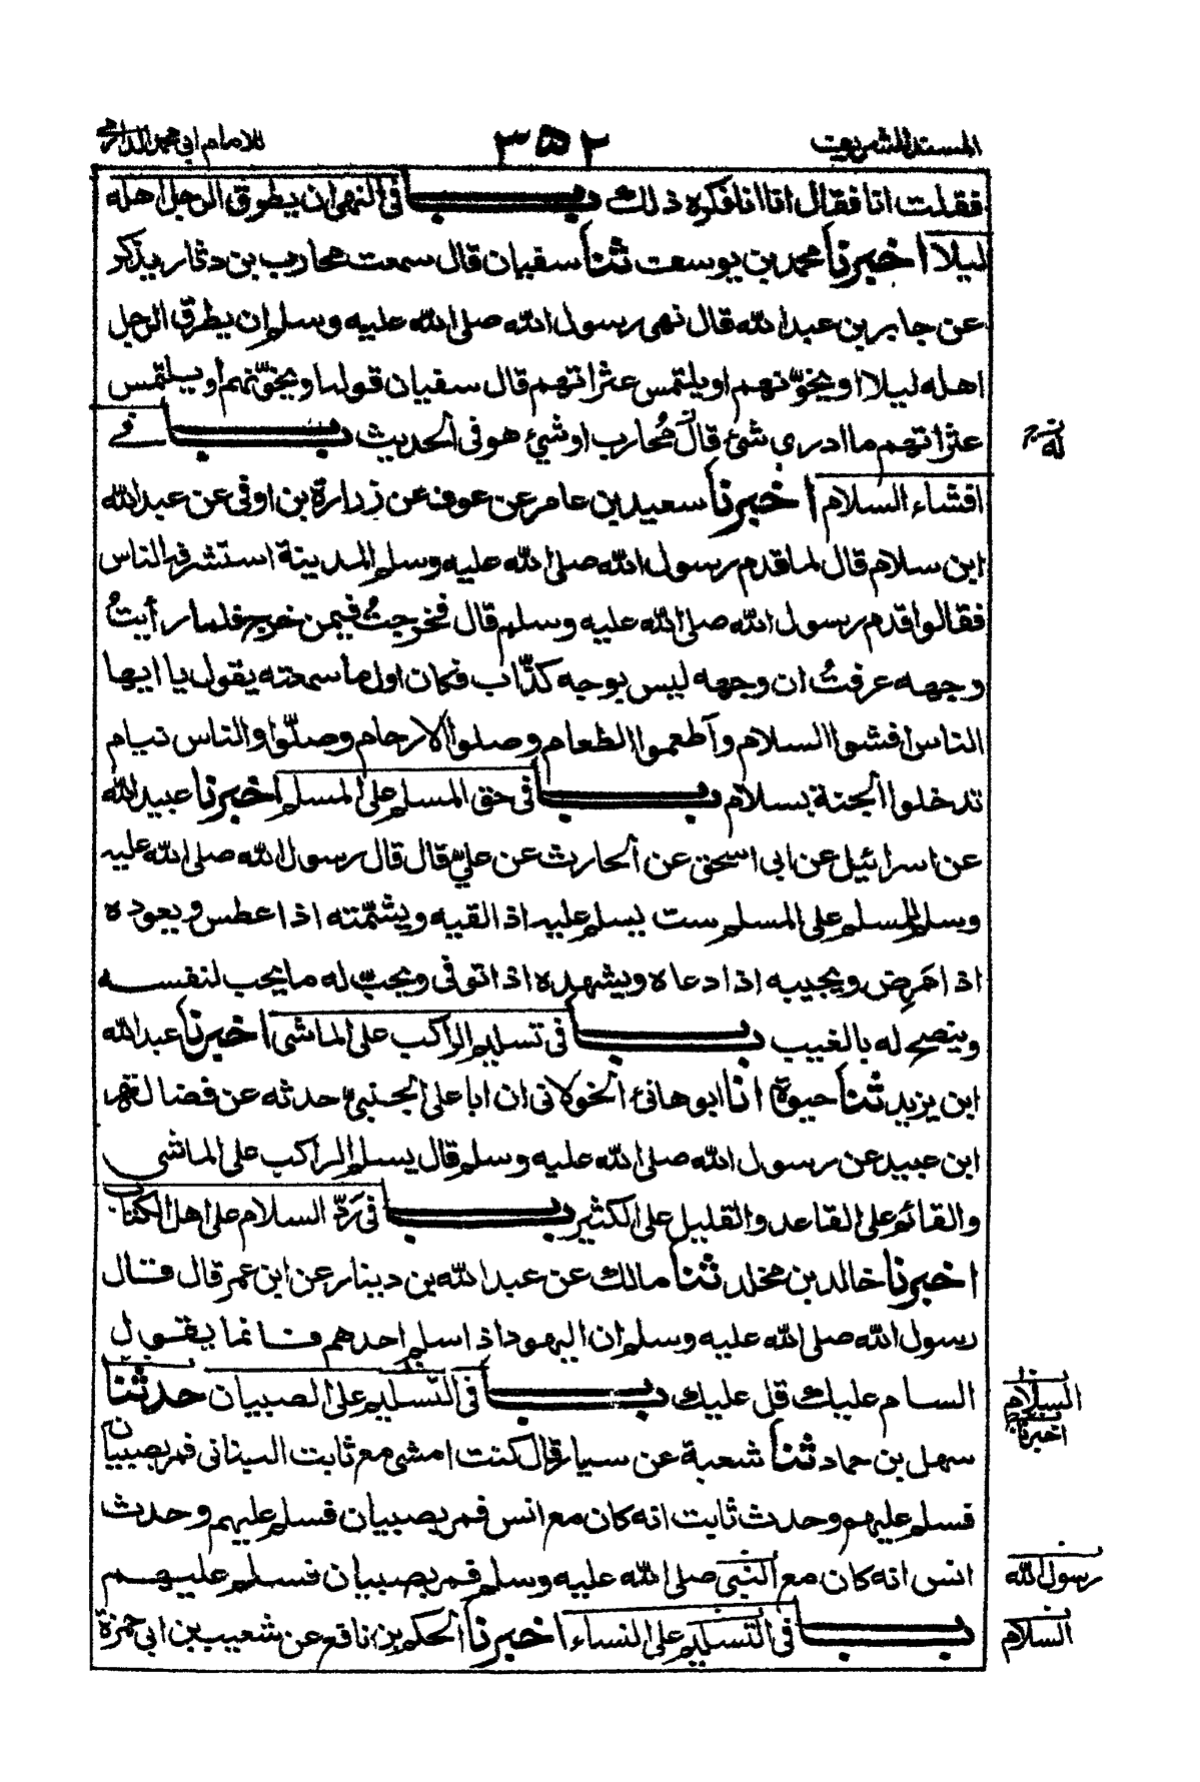 المسند الشريف ٣٥٢ للامام ابي محمد الدارمي
فقلت انا فقال انا انا فكره ذلك باب فى النهى ان يطرق الرجل اهله
ليلا اخبرنا محمد بن يوسف ثنا سفيان قال سمعت محارب بن دثار يذكر
عن جابر بن عبد الله قال نهى رسول الله صلى الله عليه وسلم ان يطرق الرجل
اهله ليلا او يخوّنهم او يلتمس عثراتهم قال سفيان قوله او يخوّنهم او يلتمس
عثراتهم ما ادرى شئ قال محُارب او شئ هو فى الحديث باب في
افشاء السلام اخبرنا سعيد بن عامر عن عوف عن زرارة بن اوفى عن عبد الله
ابن سلام قال لما قدم رسول الله صلى الله عليه وسلم المدينة استشرفه الناس
فقالوا قدم رسول الله صلى الله عليه وسلم قال فخرجتُ فيمن خرج فلما رأيتُ
وجهه عرفتُ ان وجهه ليس بوجه كذّاب فكان اول ما سمعته يقول يا ايها
الناس افشوا السلام وأطعموا الطعام وصلوا الارحام وصلّوا والناس نيام
تدخلوا الجنة بسلام باب فى حق المسلم على المسلم اخبرنا عبيد الله
عن اسرائيل عن ابى اسحق عن الحارث عن عليّ قال قال رسول الله صلى الله عليه
وسلم للمسلم على المسلم ست يسلم عليه اذا لقيه ويشمّته اذا عطس ويعوده
اذا مَرِض ويجيبه اذا دعاه ويشهده اذا توفى ويحبّ له ما يحب لنفسه
وينصح له بالغيب باب فى تسليم الراكب على الماشى اخبرنا عبد الله
ابن يزيد ثنا حيوة انا ابو هانئ الخولانى ان ابا على الجنبيّ حدثه عن فضالة
ابن عبيد عن رسول الله صلى الله عليه وسلم قال يسلم الراكب على الماشي
والقائم على القاعد والقليل على الكثير باب فى رَدّ السلام على اهل الكتاب
اخبرنا خالد بن مخلد ثنا مالك عن عبد الله بن دينار عن ابن عمر قال قال
رسول الله صلى الله عليه وسلم ان اليهود اذا سلم احدهم فانما يقول
السام عليك قل عليك باب فى التسليم على الصبيان حدثنا
سهل بن حماد ثنا شعبة عن سيار قال كنت امشى مع ثابت البنانى فمر بصبيان
فسلم عليهم وحدث ثابت انه كان مع انس فمر بصبيان فسلم عليهم وحدث
انس انه كان مع النبي صلى الله عليه وسلم فمر بصبيان فسلم عليهم
باب فى التسليم على النساء اخبرنا الحكم بن نافع عن شعيب بن ابي حمزة
السلام
اخبرنا
رسول الله
السلام